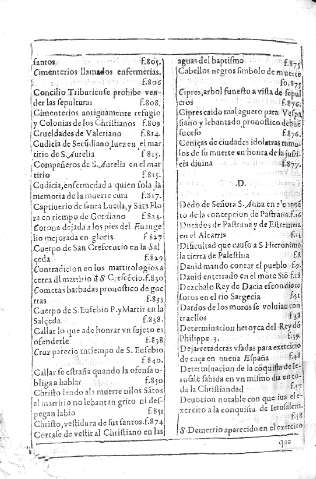 santos. f.805.
Cimenterios llamados enfermerias.
f.806
Concilio Tiburiense prohibe ven-
der las sepulturas f.808.
Cimenterios antiguamente refugio
y Colonias de los Christianos f.809
Crueldades de Valeriano f.814.
Cudicia de Secundiano Iuez en el mar
tirio de S. Aurelia f.815.
Compañeros de S. Aurelia en el mar
tirio f.815.
Cudicia, enfermedad a quien sola la
memoria de la muerte cura f.817.
Captiuerio de santa Lucila, y Santa Flo
ra en tiempo de Gordiano f.823.
Corona dejada a los pies del Euange
lio mejorada en gloria f.827
Cuerpo de San Crescencio en la Sal
çeda f.829
Contradicion en los martirologios a
cerca del martirio S Crescécio. f.830
Cometas barbadas pronostico de gue
rras f.833
Cuerpo de S. Eusebio P. y Martir en la
Salçeda f.838.
Callar lo que a de honrar vn sujeto es
ofenderle f.838
Cruz parecio en tiempo de S. Eusebio
f.840.
Callar se estraña quando la ofensa o-
bliga a hablar f.850
Christo siendo als muerte silos Santos
al martirio no lebantan grito ni des-
pegan labio f.851
Christo, vestidura de sus santos. f.874
Certase de vestir al Christiano en las
aguas del baptismo f.875
Cabellos negros simbolo de muerte
fo.875
Cipres, arbol funesto a vista de sepul
cros f.876.
Cipres caido mal aguero para Vespa
siano y lebantado pronostico de bué
suceso f.876.
Ceniças de ciudades idolatras simbo
los de su muerte en honra de la justi-
cia diuina f.877.
.D.
Dedo de Señora S. Anna en el conue
to de la concepcion de Pastrana. f.16
Ducados de Pastrana y de Estremera
en el Alcarria f.1
Dificultad que causo a S. Hieronimo
la tierra de Palestina f.8
Dauid mando contar el pueblo f.9.
Dauid enterrado en el môte Siô f.28
Dezebalo Rey de Dacia escondio te
soros en el rio Sargecia f.31
Dardos de los moros se voluian con
tra ellos f.38
Determinacion heroyca del Rey dô
Philippe 3. f.39.
Dejarretaderas vsadas para exercicio
de caça en nueua España f.48
Determinacion de la côquista de Ie-
rusale sabida en vn mismo dia en to
da la Christiandad f.47
Deuocion notable con que iua el e-
xercito a la conquista de Ierusalem.
f.48
S. Demetrio aparecido en el exercito
que